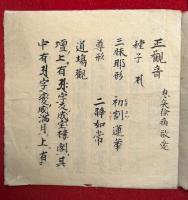 正觀音 息災除病敬愛
種子 
三昧耶形 初割蓮華
尊形 二臂如常
道場觀
壇上有字變成寶樓閣其
中有字變成滿月上有